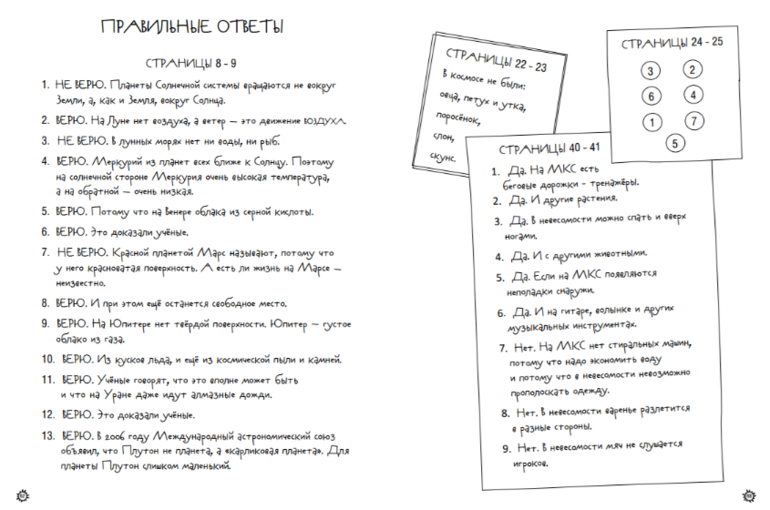 ПРАВИЛЬНЫЕ ОТВЕТЫ
СТРАНИЦЫ 8 - 9
1. НЕ ВЕРЮ. Планеты Солнечной системы вращаются не вокруг
Земли, а, как и Земля, вокруг Солнца.
2. ВЕРЮ. На Луне нет воздуха, а ветер — это движение ВОЗДУХА.
3. НЕ ВЕРЮ. В лунных морях нет ни воды, ни рыб.
4. ВЕРЮ. Меркурий из планет всех ближе к Солнцу. Поэтому
на солнечной стороне Меркурия очень высокая температура,
а на обратной — очень низкая.
5. ВЕРЮ. Потому что на Венере облака из серной кислоты.
6. ВЕРЮ. Это доказали учёные.
7. НЕ ВЕРЮ. Красной планетой Марс называют, потому что
у него красноватая поверхность. А есть ли жизнь на Марсе —
неизвестно.
8. ВЕРЮ. И при этом ещё останется свободное место.
9. ВЕРЮ. На Юпитере нет твёрдой поверхности. Юпитер — густое
облако из газа.
10. ВЕРЮ. Из кусков льда, и ещё из космической пыли и камней.
11. ВЕРЮ. Учёные говорят, что это вполне может быть
и что на Уране даже идут алмазные дожди.
12. ВЕРЮ. Это доказали учёные.
13. ВЕРЮ. В 2006 году Международный астрономический союз
объявил, что Плутон не планета, а «карликовая планета». Для
планеты Плутон слишком маленький.
СТРАНИЦЫ 22 - 23
В космосе не были:
овца, петух и утка,
поросёнок,
слон,
скунс.
СТРАНИЦЫ 24 - 25
3 2
6 4
1 7
5
СТРАНИЦЫ 40 - 41
1. Да. На МКС есть
беговые дорожки - тренажёры.
2. Да. И другие растения.
3. Да. В невесомости можно спать и вверх
ногами.
4. Да. И с другими животными.
5. Да. Если на МКС появляются
неполадки снаружи.
6. Да. И на гитаре, волынке и других
музыкальных инструментах.
7. Нет. На МКС нет стиральных машин,
потому что надо экономить воду
и потому что в невесомости невозможно
прополоскать одежду.
8. Нет. В невесомости варенье разлетится
в разные стороны.
9. Нет. В невесомости мяч не слушается
игроков.